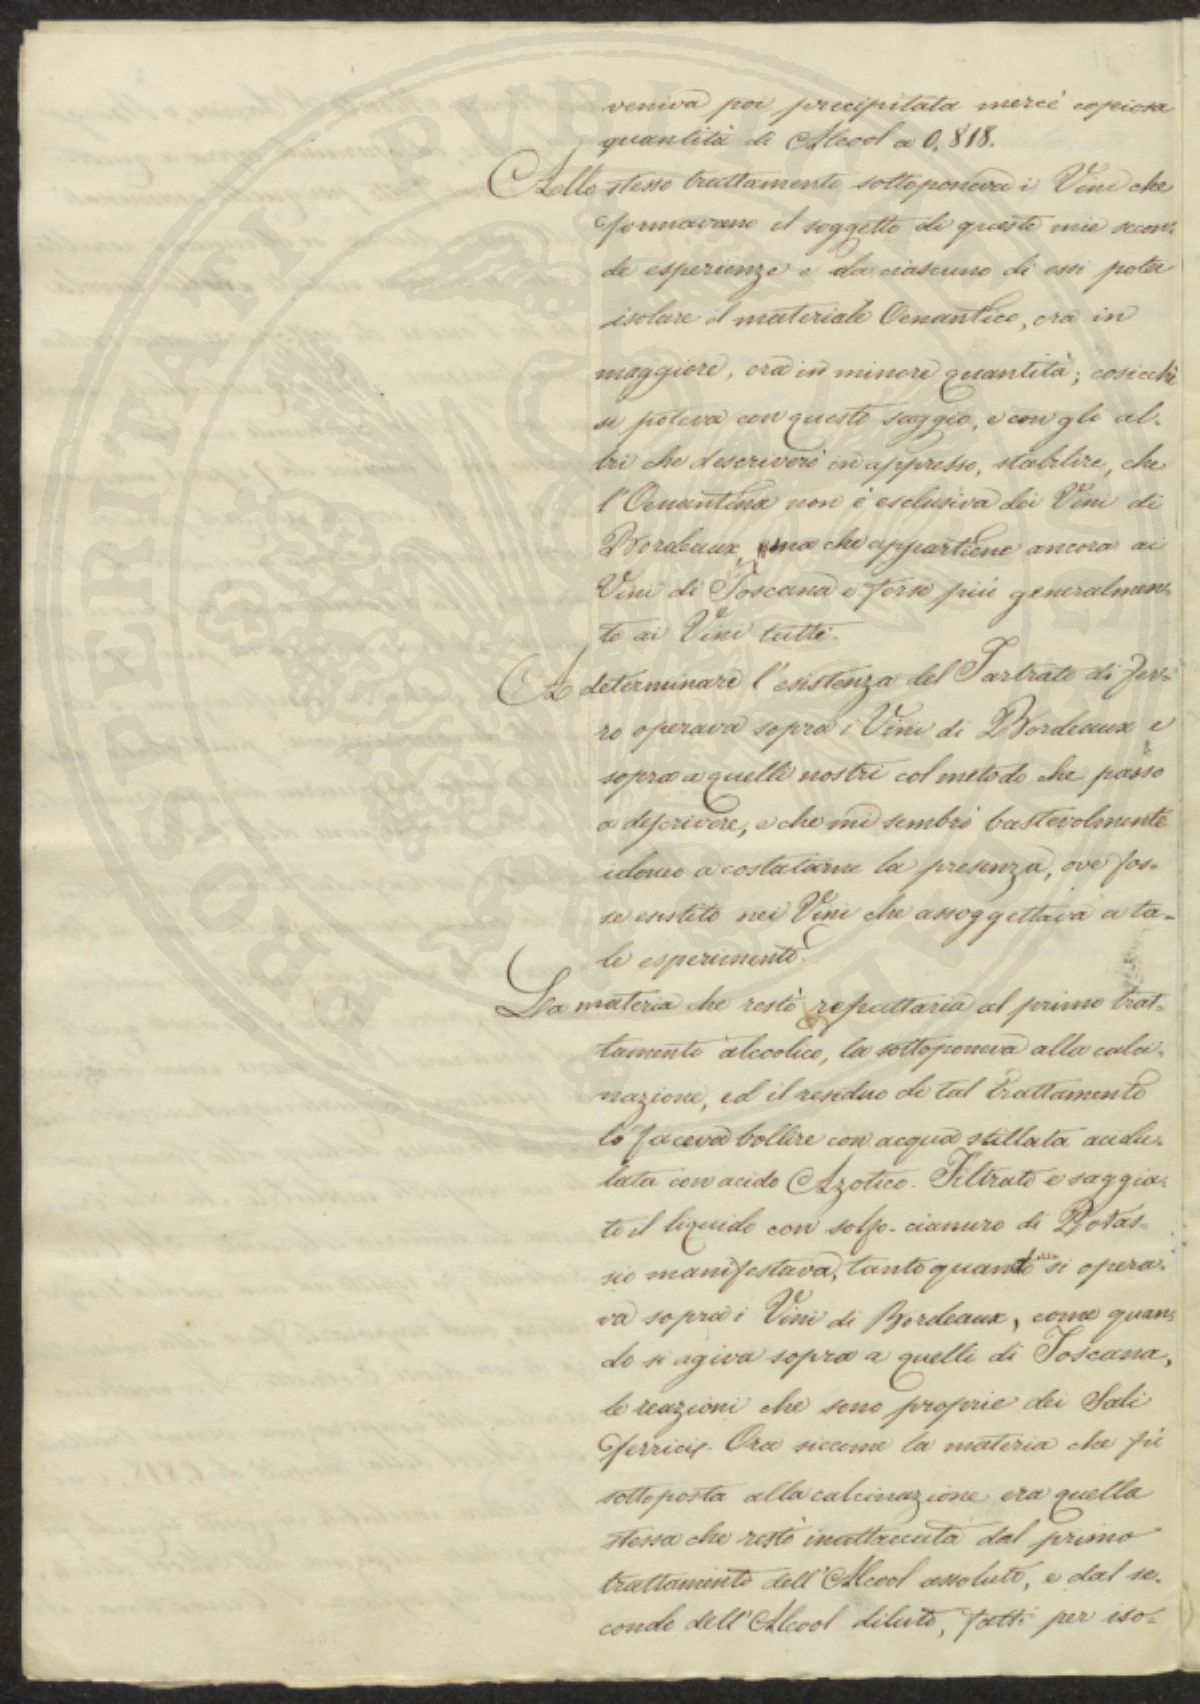 veniva poi precipitata mercè copiosa
quantità di Alcool a 0,818.
Allo stesso trattamento sottoponeva i Vini che
formavano il soggetto di queste mie secon-
de esperienze e da ciascuno di essi potei
isolare il materiale Oenantico, ora in
maggiore, ora in minore quantità; cosicchè
si poteva con questo saggio, e con gli al-
tri che descriverò in appresso, stabilire, che
l'Oenantina non è esclusiva dei Vini di
Bordeaux, ma che appartiene ancora ai
Vini di Toscana e forse più generalmen-
te ai Vini tutti.
A determinare l'esistenza del Tartrato di Fer-
ro operava sopra i Vini di Bordeaux e
sopra a quelli nostri col metodo che passo
a descrivere, e che mi sembrò bastevolmente
idoneo a costatarne la presenza, ove fos-
se esistito nei Vini che assoggettava a ta-
le esperimento.
La materia che restò refrattaria al primo trat-
tamento alcoolico, la sottoponeva alla calci-
nazione, ed il residuo di tal trattamento
lo faceva bollire con acqua stillata acidu-
lata con acido Azotico. Filtrato e saggia-
to il liquido con solfo-cianuro di Potas-
sio manifestava, tanto quando si opera-
va sopra i Vini di Bordeaux, come quan-
do si agiva sopra a quelli di Toscana,
le reazioni che sono proprie dei Sali
ferrici. Ora siccome la materia che fù
sottoposta alla calcinazione era quella
stessa che restò inattaccata dal primo
trattamento dell'Alcool assoluto, e dal se-
condo dell'Alcool diluto, fatti per iso-
PROSPERITATI PUBLICAE